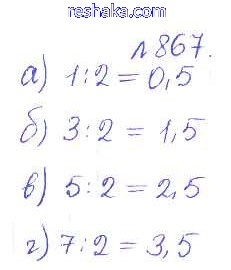 reshaka.com
№ 867.
а) 1:2 = 0,5
б) 3:2 = 1,5
в) 5:2 = 2,5
г) 7:2 = 3,5